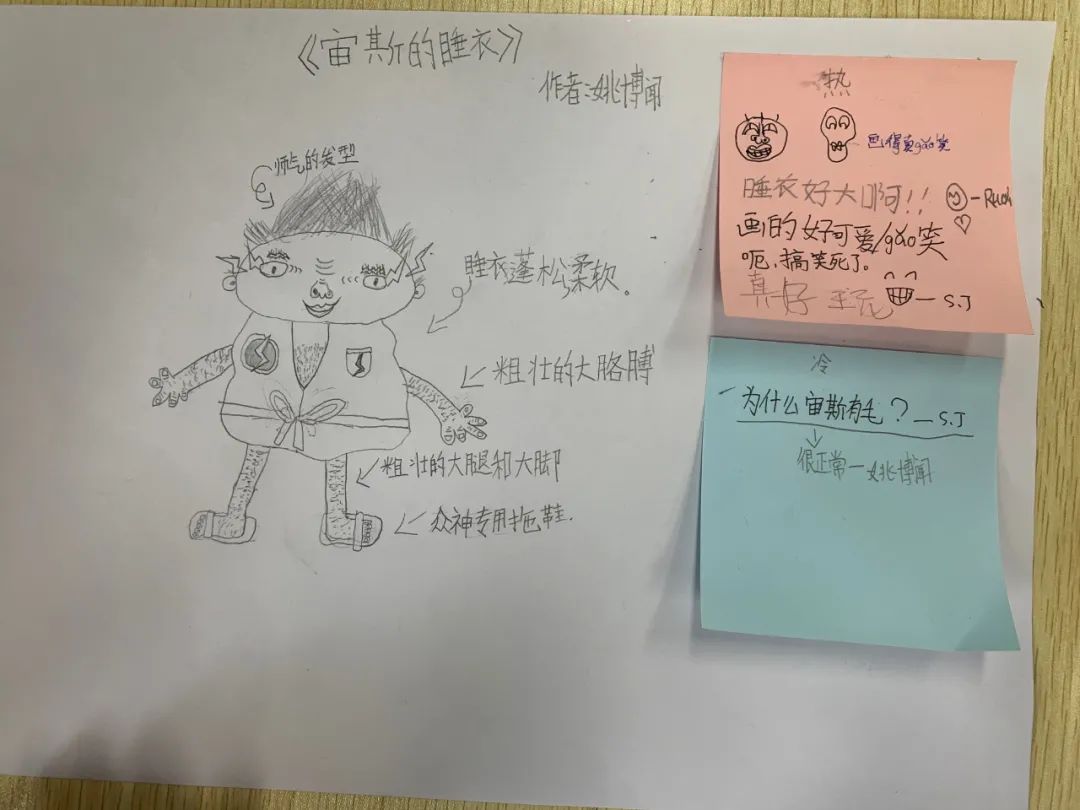 《宙斯的睡衣》
作者:姚博闻
帅气的发型
睡衣蓬松柔软。
粗壮的大胳膊
粗壮的大腿和大脚
众神专用拖鞋.
热
画得真gǎo笑
睡衣好大啊!!
画的好可爱/gǎo笑
呃,搞笑死了。
真好
— S.J
冷
为什么宙斯有毛?— S.J
很正常—姚博闻